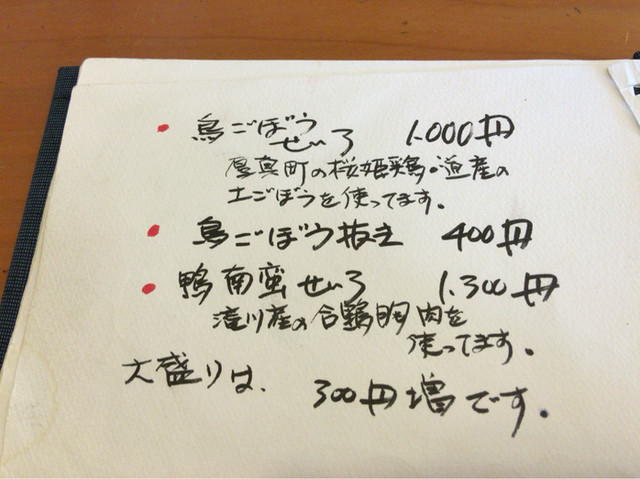 鳥ごぼう
せいろ 1.000円
厚真町の桜姫鶏・道産の
土ごぼうを使ってます。
鳥ごぼう抜き 400円
鴨南蛮せいろ 1.300円
滝川産の合鴨胸肉を
使ってます。
大盛りは、300円増です。